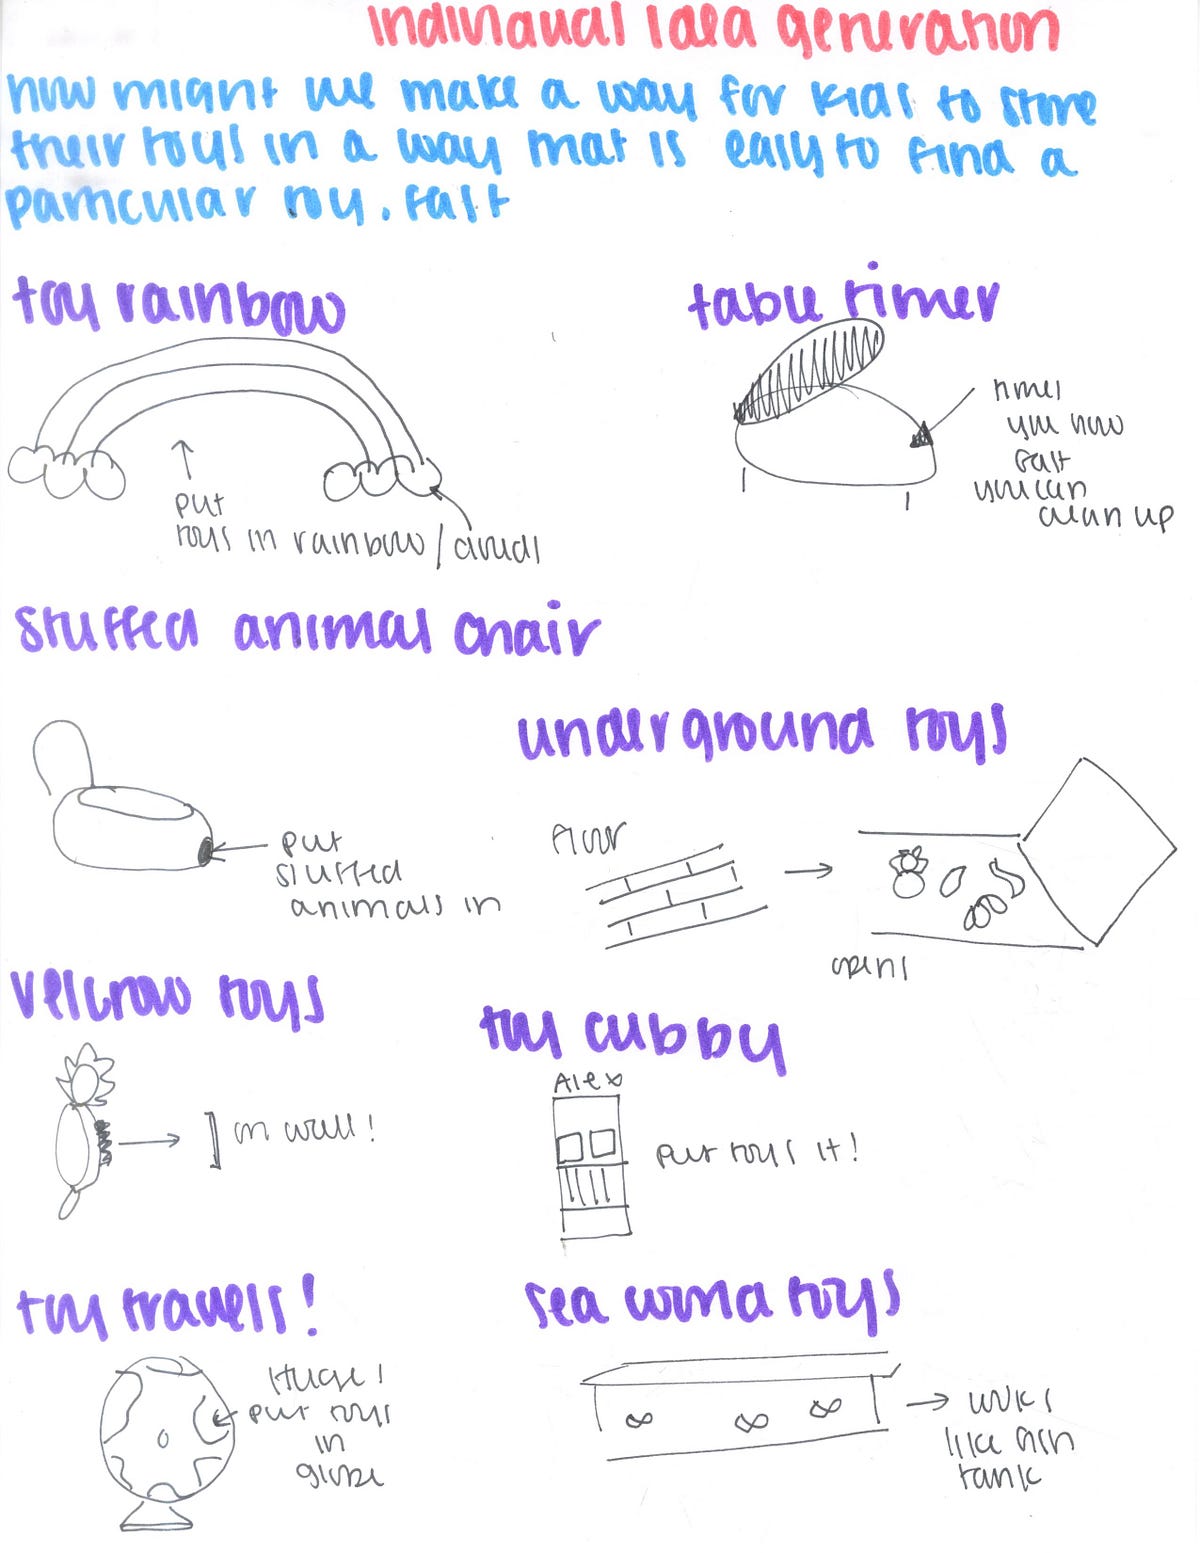 Individual Idea generation
how might we make a way for kids to store
their toys in a way that is easy to find a
particular toy. fast
toy rainbow
put
toys in rainbow / clouds
table timer
timer
you how
fast
you can
clean up
stuffed animal chair
put
stuffed
animals in
underground toys
floor
opens
velcrow toys
on wall!
toy cubby
Alex
put toys it!
toy travels!
Huge!
put toys
in
globe
sea world toys
looks
like fish
tank